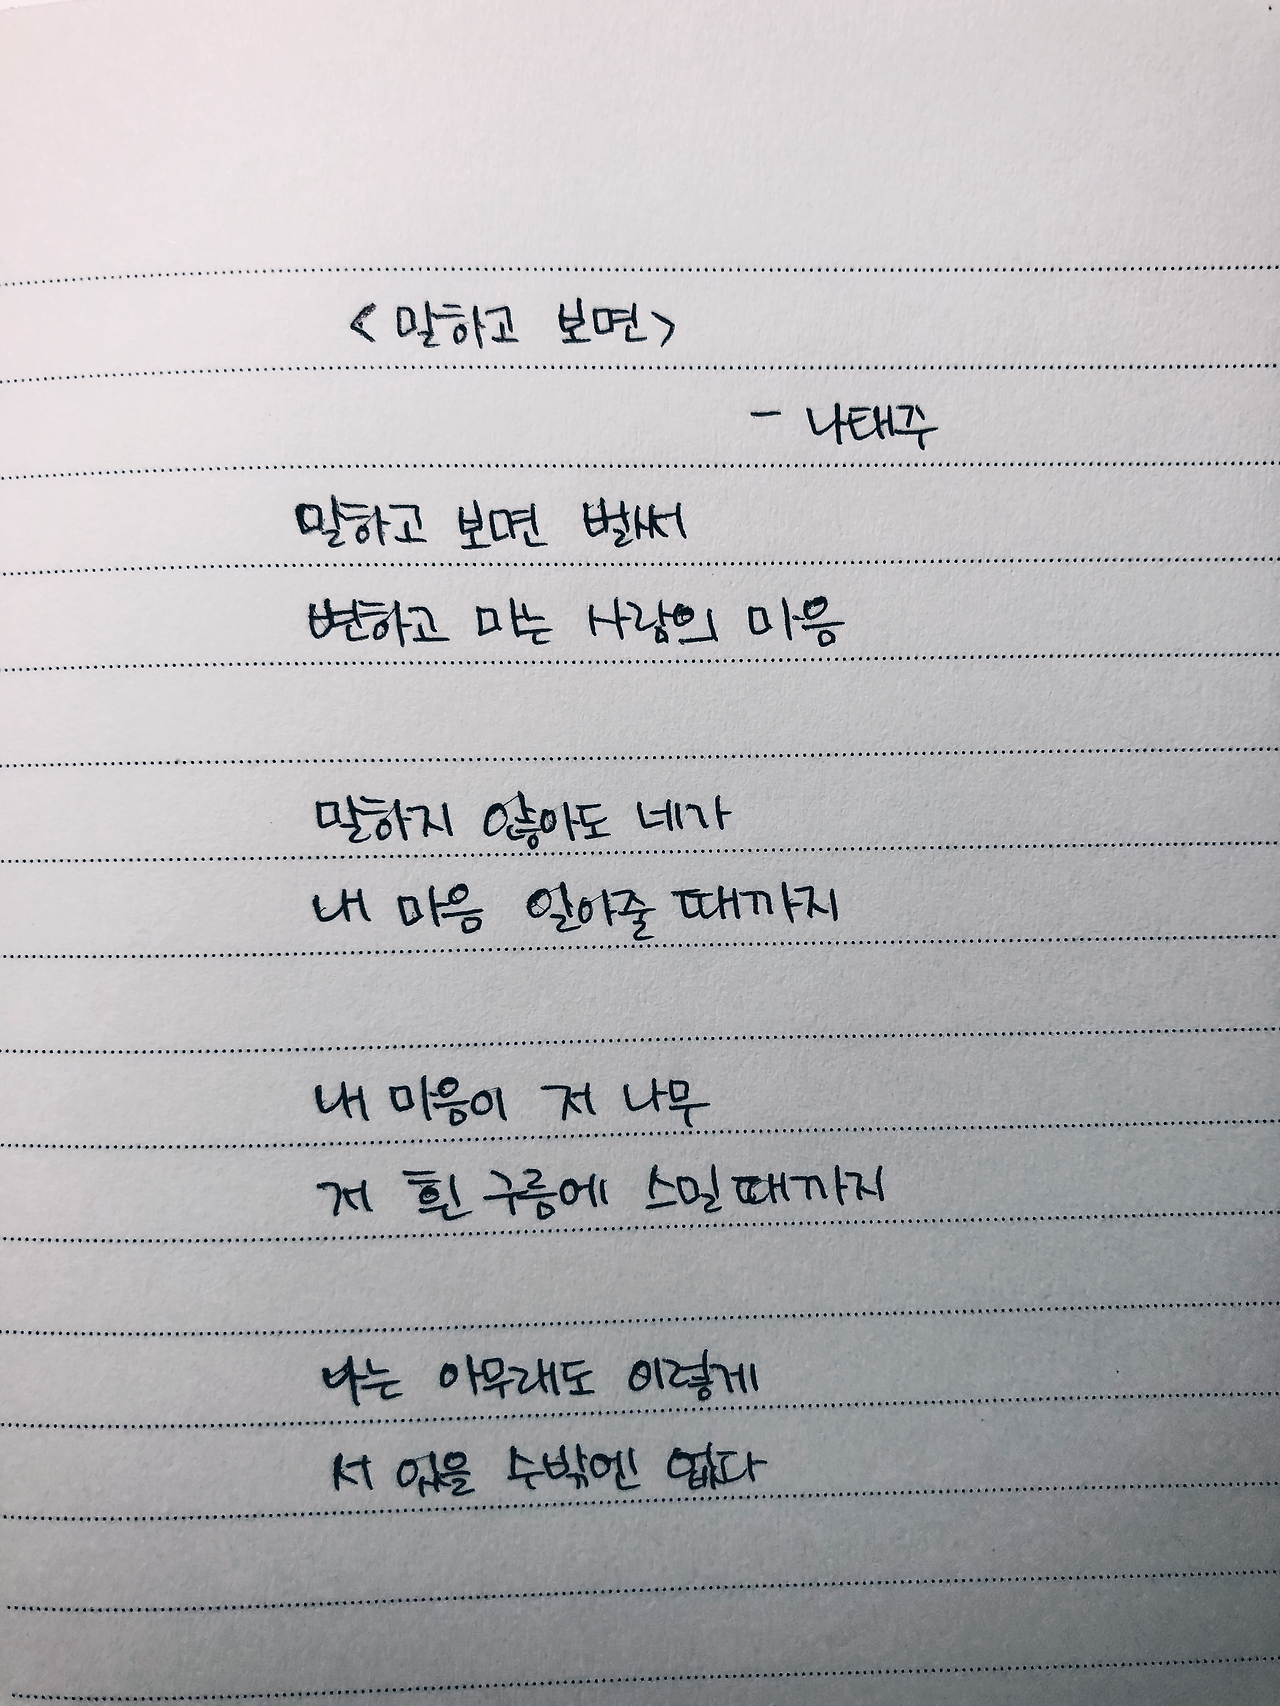 <말하고 보면>
- 나태주
말하고 보면 벌써
변하고 마는 사람의 마음
말하지 않아도 네가
내 마음 알아줄 때까지
내 마음이 저 나무
저 흰 구름에 스밀 때까지
나는 아무래도 이렇게
서 있을 수밖엔 없다